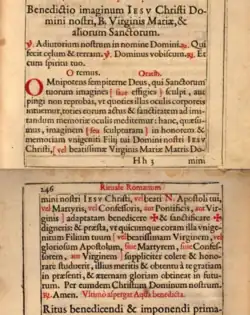 Benedictio imaginum IESV Christi Domini
nostri, B. Virginis Mariæ, &
aliorum Sanctorum.
℣. Adiutorium nostrum in nomine Domini. ℟. Qui
fecit cælum & terram. ℣. Dominus vobiscum. ℟. Et
cum spiritu tuo.
Oremus. Oratio.
OMnipotens sempiterne Deus, qui Sanctorum
tuorum imagines (siue effigies) sculpi, aut
pingi non reprobas, vt quoties illas oculis corporeis
intuemur, toties eorum actus & sanctitatem ad imitandum
memoriæ oculis meditemur: hanc, quæsumus,
imaginem (seu sculpturam) in honorem &
memoriam vnigeniti Filij tui Domini nostri IESV
Christi, (vel beatissimæ Virginis Mariæ Matris Do-
Hh 3 mini
246 Rituale Romanum
mini nostri IESV Christi, vel beati N. Apostoli tui,
vel Martyris, vel Confessoris, aut Pontificis, aut Virginis)
adaptatam benedicere ✠ & sanctificare ✠
digneris: & præsta, vt quicumque coram illa vnigenitum
Filium tuum (vel beatissimam Virginem, vel
gloriosum Apostolum, siue Martyrem, siue Confessorem,
aut Virginem) suppliciter colere & honorare
studuerit, illius meritis & obtentu à te gratiam
in præsenti, & æternam gloriam obtineat in futurum.
Per eumdem Christum Dominum nostrum.
℟. Amen. Vltimò aspergat Aqua benedicta.
Ritus benedicendi & imponendi prima-